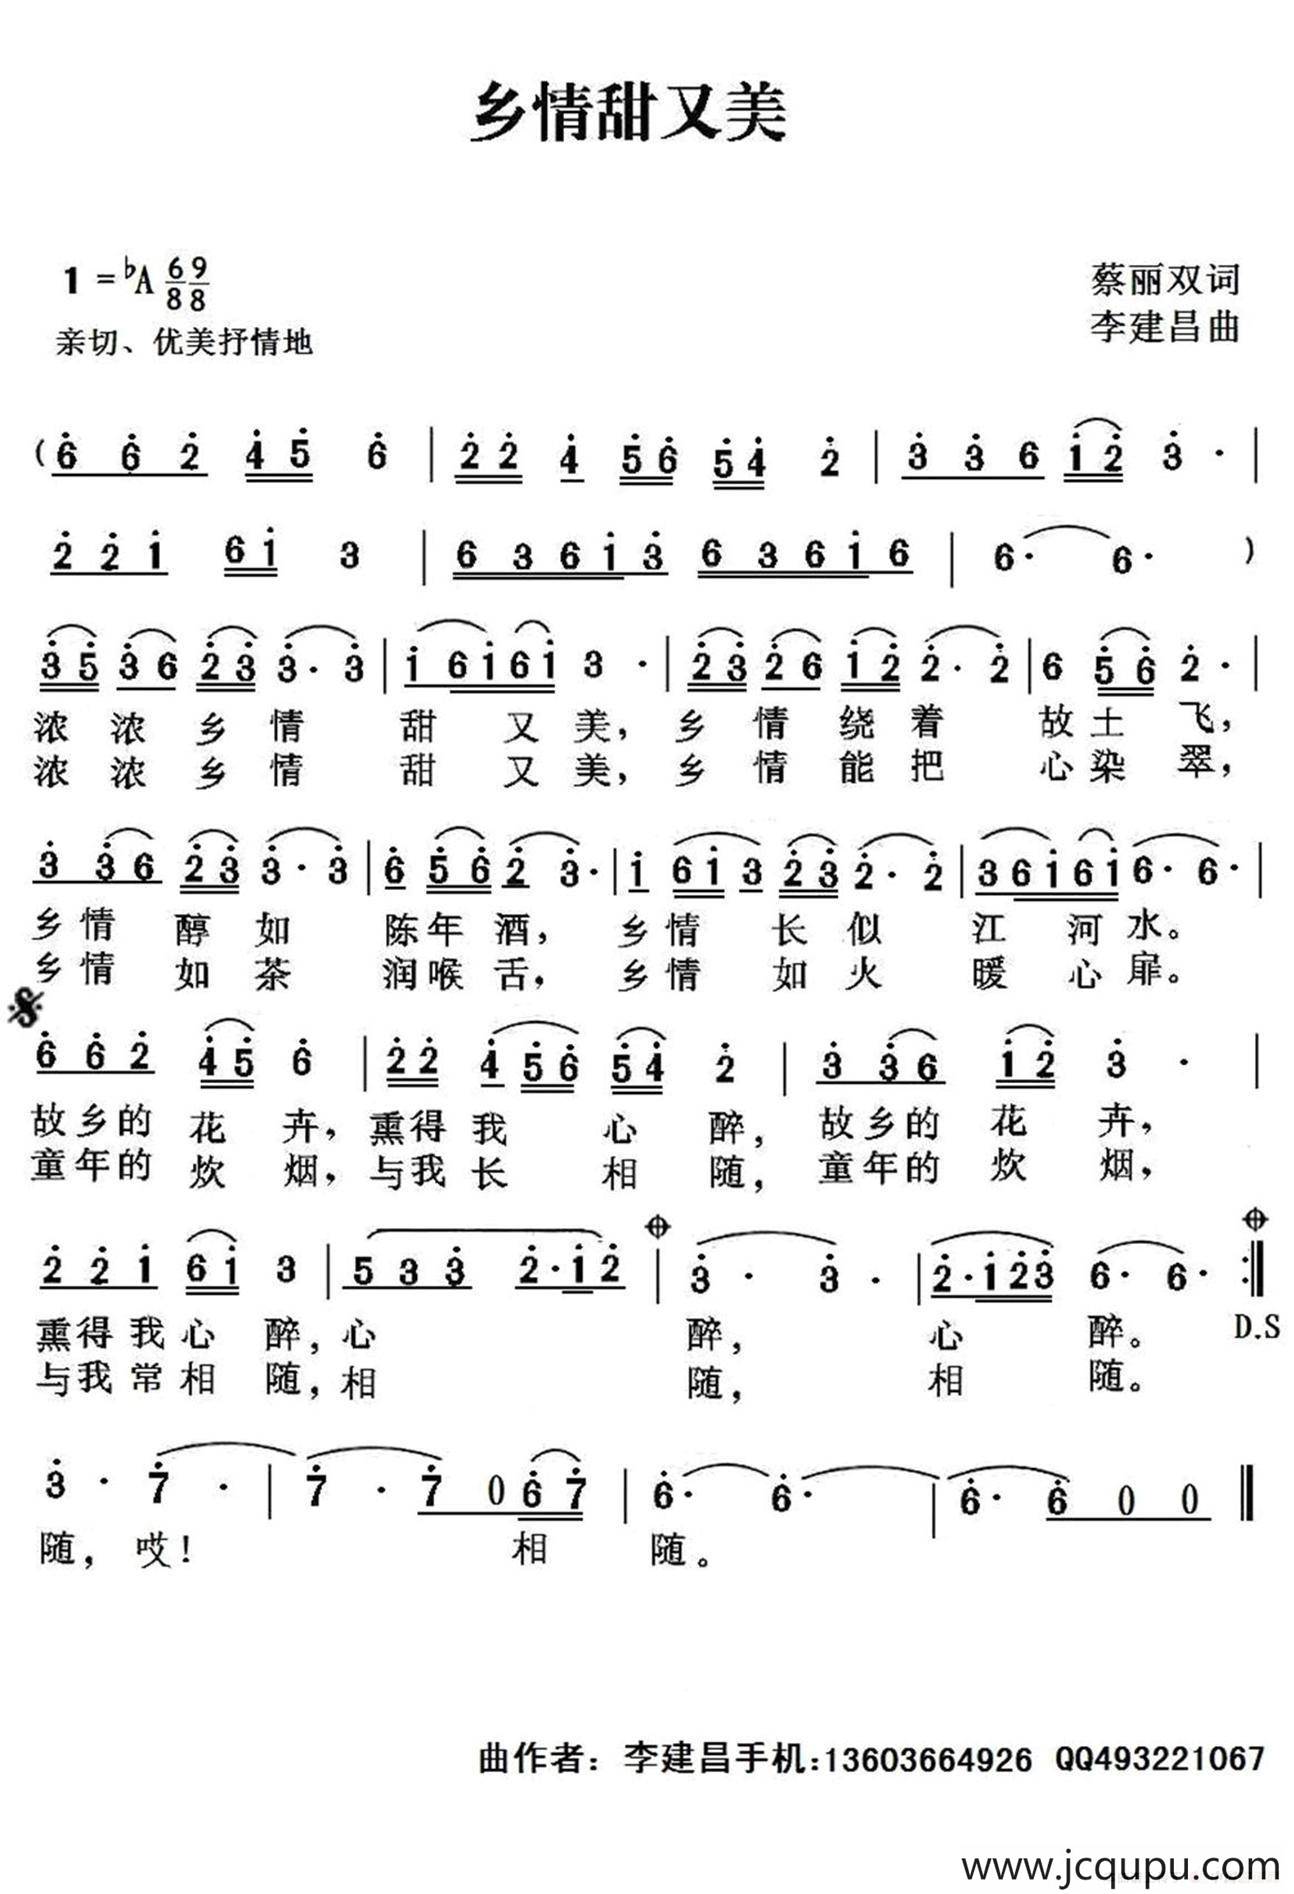 乡情甜又美
1 = ♭A 6/8 9/8
蔡丽双词
亲切、优美抒情地
李建昌曲
( 6 6 2 4 5 6 | 2 2 4 5 6 5 4 2 | 3 3 6 1 2 3 · |
2 2 1 6 1 3 | 6 3 6 1 3 6 3 6 1 6 | 6 · 6 · )
3 5 3 6 2 3 3 · 3 | 1 6 1 6 1 3 · | 2 3 2 6 1 2 2 · 2 | 6 5 6 2 · |
浓 浓 乡 情 甜 又 美, 乡 情 绕 着 故 土 飞,
浓 浓 乡 情 甜 又 美, 乡 情 能 把 心 染 翠,
3 3 6 2 3 3 · 3 | 6 5 6 2 3 · | 1 6 1 3 2 3 2 · 2 | 3 6 1 6 1 6 · 6 · |
乡 情 醇 如 陈 年 酒, 乡 情 长 似 江 河 水。
乡 情 如 茶 润 喉 舌, 乡 情 如 火 暖 心 扉。
6 6 2 4 5 6 | 2 2 4 5 6 5 4 2 | 3 3 6 1 2 3 · |
故 乡 的 花 卉, 熏 得 我 心 醉, 故 乡 的 花 卉,
童 年 的 炊 烟, 与 我 长 相 随, 童 年 的 炊 烟,
2 2 1 6 1 3 | 5 3 3 2 · 1 2 | 3 · 3 · | 2 · 1 2 3 6 · 6 · :||
熏 得 我 心 醉, 心 醉, 心 醉。 D.S
与 我 常 相 随, 相 随, 相 随。
3 · 7 · | 7 · 7 0 6 7 | 6 · 6 · | 6 · 6 0 0 ||
随, 哎! 相 随。
曲作者: 李建昌手机:13603664926 QQ493221067
www.jcqupu.com